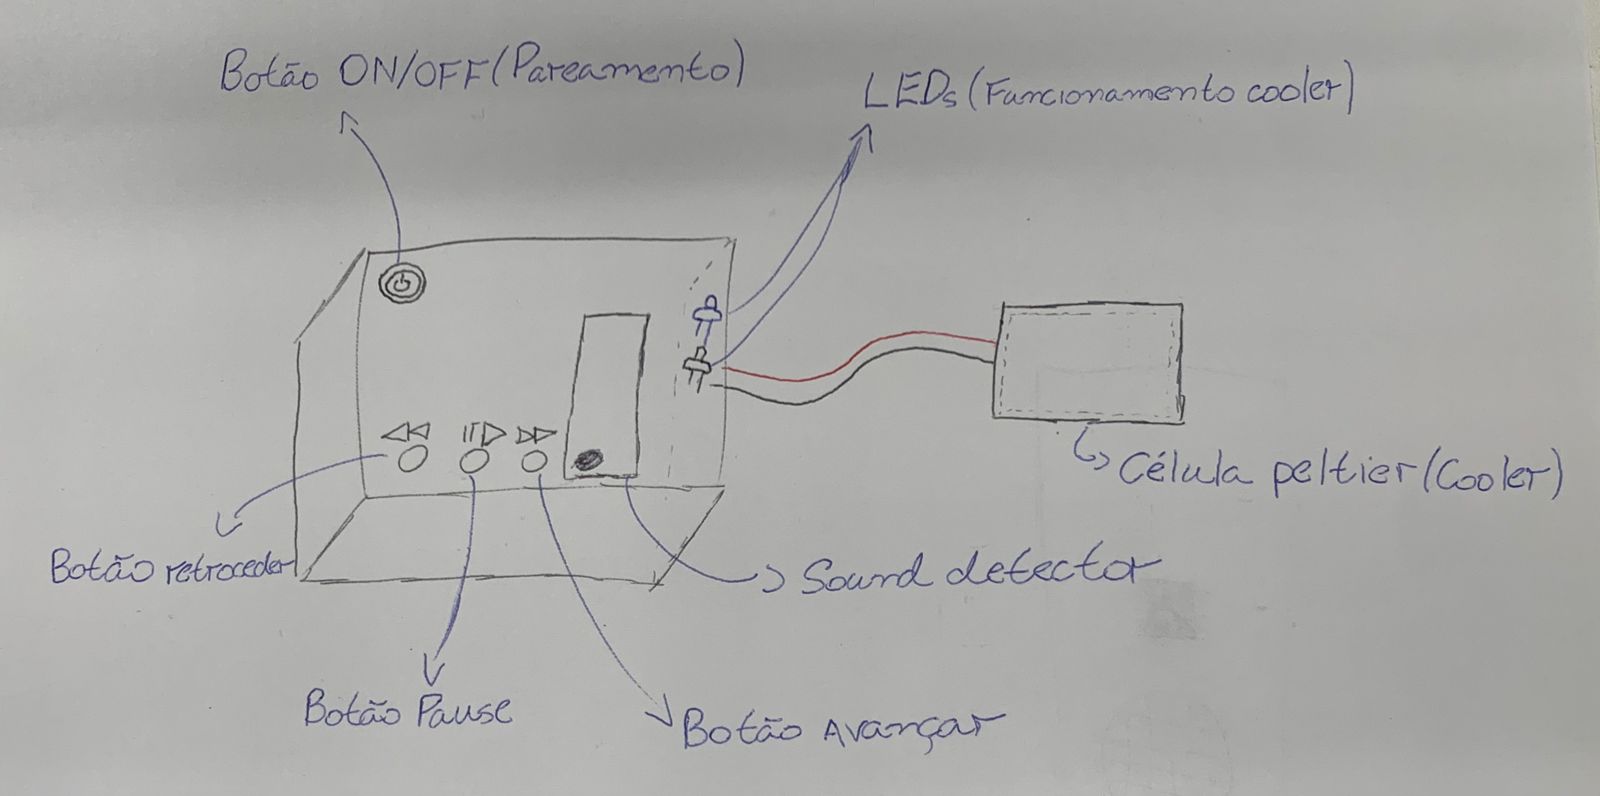 Botão ON/OFF (Pareamento)
LEDs (Funcionamento cooler)
Célula peltier (Cooler)
Botão retroceder
Sound detector
Botão Pause
Botão Avançar